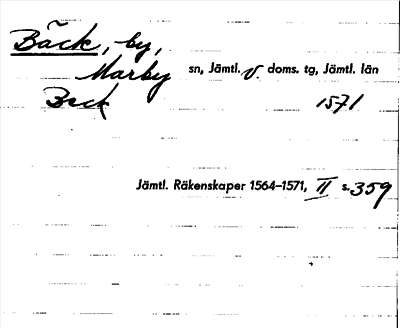 Bäck, by,
Marby sn, Jämtl. v. doms. tg, Jämtl. län
Beck 1571
Jämtl. Räkenskaper 1564–1571, II s. 359